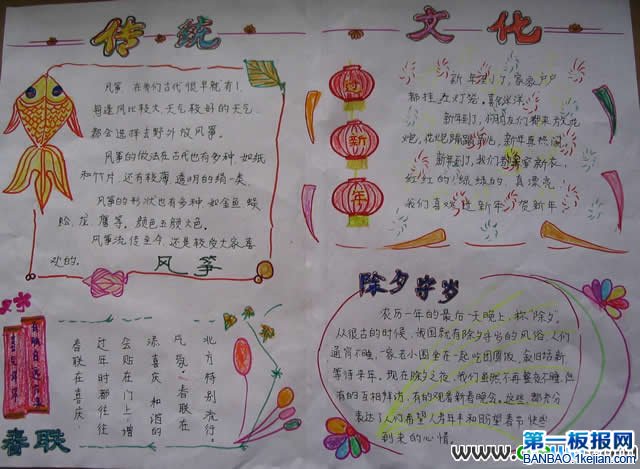 传统
文化
风筝，在我们古代很早就有！
每逢风比较大，天气较好的天气，
都会选择去野外放风筝。
风筝的做法在古代也有多种，如纸
和竹片，还有较薄，透明的绢一类。
风筝的形状也有多种，如金鱼、蜈
蚣、龙、鹰等，颜色五颜六色。
风筝流传至今，还是较受大家喜
欢的。
风筝
新年到了，家家户户
都挂左灯笼，喜气洋洋。
新年到了，狗狗友们都来放花
炮，花炮
新年真热闹
新年到了，我们都
穿新衣，
红红的，绿绿的，真漂亮。
我们喜欢过新年，贺新年
新
年
春联在喜庆
过年时都往往
会贴在门上，增
添喜庆和谐的
气氛，春联在
北方特别流行。
春联
除夕守岁
农历一年的最后一天晚上，称“除夕”，
从很古的时候，我国就有除夕守岁的风俗，人们
通宵不睡，家老小围坐在一起吃团圆饭，叙旧话新，
等待来年。现在，除夕之夜，我们虽然不再整夜不睡，但
有的互相拜访，有的观看新春晚会。这些，都充分
表达了人们希望人寿年丰和盼望春节快些
到来的心情。
第一板报网
BANBAO.1kejian.com